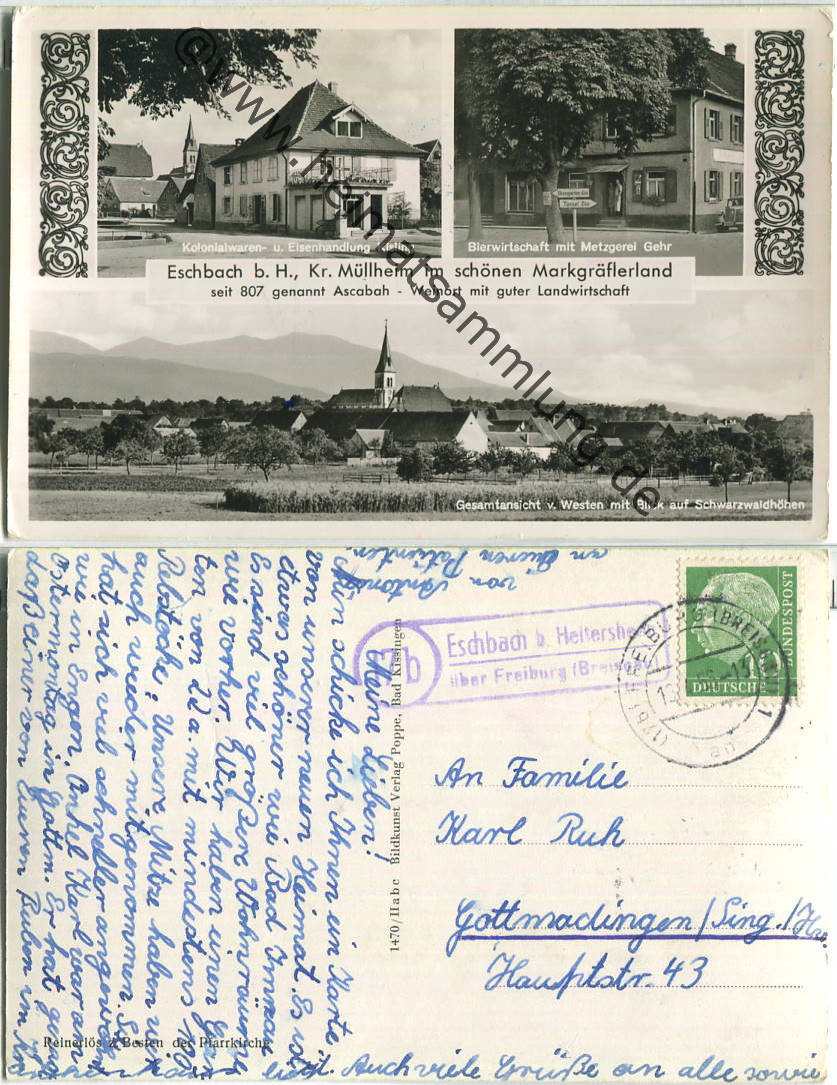 Kolonialwaren- u. Eisenhandlung
Bierwirtschaft mit Metzgerei Gehr
Eschbach b. H., Kr. Müllheim im schönen Markgräflerland
seit 807 genannt Ascabah - Weinort mit guter Landwirtschaft
Gesamtansicht v. Westen mit Blick auf Schwarzwaldhöhen
@www.heimatsammlung.de
Meine Lieben!
schicke ich Ihnen eine Karte
von unserer neuen Heimat. Es ist
etwas schöner wie Bad
Es sind viel größere Wohnräume
wie vorher. Wir haben einen
ten von 22 a mit mindestens
Rebstöcke. Unsere Mitze haben wir
auch wieder mitgenommen. Sie
hat sich viel schneller angewöhnt
wie in Engen. Onkel Karl war am
Ostermontag in Gottm. Er hat
daß einer von Eueren Buben im
krankenhaus liegt. Auch viele Grüße an alle sowie
an Eueren Patienten
von Antons
Reinerlös z. Besten der Pfarrkirche
1470/IIabc Bildkunst Verlag Poppe, Bad Kissingen
17b
Eschbach b. Heitersheim
über Freiburg (Breisgau)
(17b) FREIBURG (BREISGAU) 1
DEUTSCHE
BUNDESPOST
An Familie
Karl Ruh
Gottmadingen/Sing./
Hauptstr. 43